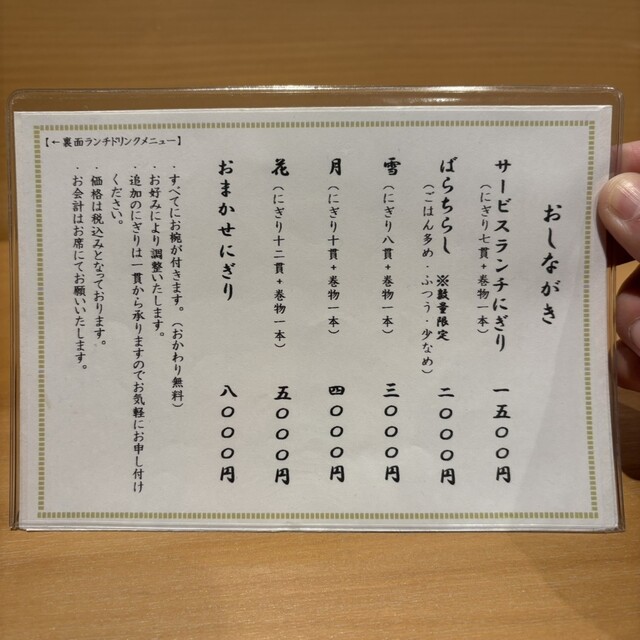 おしながき
サービスランチにぎり 一五〇〇円
(にぎり七貫+巻物一本)
ばらちらし ※数量限定 二〇〇〇円
(ごはん多め・ふつう・少なめ)
雪 三〇〇〇円
(にぎり八貫+巻物一本)
月 四〇〇〇円
(にぎり十貫+巻物一本)
花 五〇〇〇円
(にぎり十二貫+巻物一本)
おまかせにぎり 八〇〇〇円
・すべてにお椀が付きます。(おかわり無料)
・お好みにより調整いたします。
・追加のにぎりは一貫から承りますのでお気軽にお申し付け
ください。
・価格は税込みとなっております。
・お会計はお席にてお願いいたします。
【←裏面ランチドリンクメニュー】